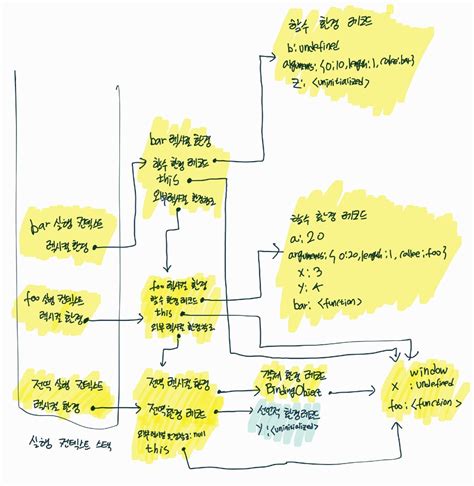 함수 환경 레코드
b: undefined
arguments: {0:10, length:1, callee:bar}
z: <uninitialized>
bar 렉시컬 환경
함수 환경 레코드
this
외부 렉시컬 환경 참조
bar 실행 컨텍스트
렉시컬 환경
함수 환경 레코드
a: 20
arguments: {0:20, length:1, callee:foo}
x: 3
y: 4
bar: <function>
foo 실행 컨텍스트
렉시컬 환경
foo 렉시컬 환경
함수 환경 레코드
this
외부 렉시컬 환경 참조
전역 실행 컨텍스트
렉시컬 환경
전역 렉시컬 환경
전역 환경 레코드
외부 렉시컬 환경 참조: null
this
객체 환경 레코드
BindingObject
선언적 환경 레코드
y: <uninitialized>
window
x : undefined
foo: <function>
실행 컨텍스트 스택